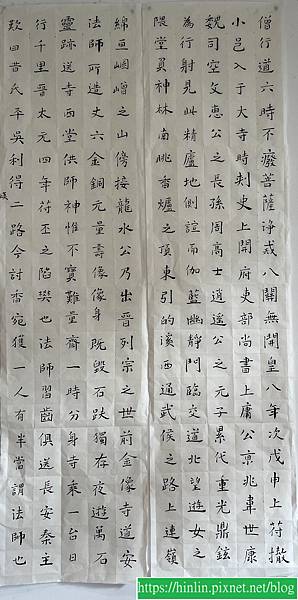 僧行道六時不癈菩薩诤戒八關無開皇八年次戊申上符撤
小邑入于大寺時刺史上開府史部尚書上庸公京兆韋世康
魏司空文惠公之長孫周高士逍遙公之元子累代重光鼎鉉
為行射見此精廬地側諠而伽藍幽静門臨交道北望遊女之
隈堂莫神林南眺香爐之頂東引的西通武侯之路上連嶺
綿亘崛嶒之山傍接龍水公乃出晉列宗之世前金像寺道安
法師所造丈六金銅元量壽像像身既毀石趺獨存夜遊萬石
靈跡送寺西堂供師神惟不寶難量齊一時分身寺乘一台日
行千里晉太元四年符丕之陷樊也法師習齒俱送長安秦主
歎曰昔氏平吳利得二路今討香宛獲一人有半當謂法師也
https://hinlin.pixnet.net/blog